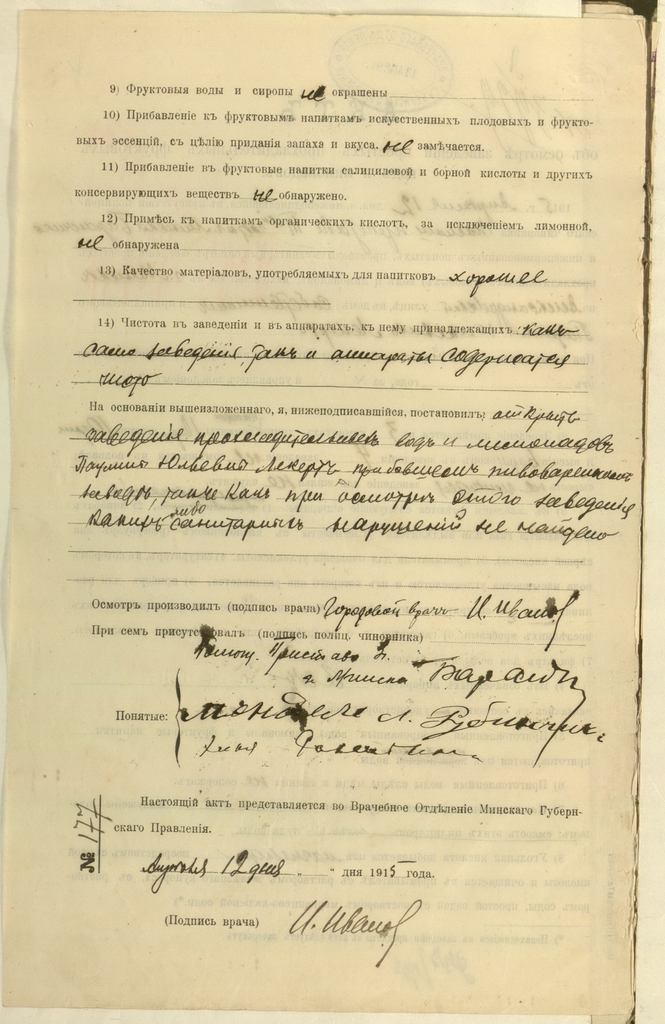 9) Фруктовыя воды и сиропы не окрашены
10) Прибавленіе къ фруктовымъ напиткамъ искусственныхъ плодовыхъ и фрукто-
выхъ эссенцій, съ цѣлію приданія запаха и вкуса, не замѣчается.
11) Прибавленіе въ фруктовые напитки салициловой и борной кислоты и другихъ
консервирующихъ веществъ не обнаружено.
12) Примѣсь къ напиткамъ органическихъ кислотъ, за исключеніемъ лимонной,
не обнаружена
13) Качество матеріаловъ, употребляемыхъ для напитковъ хорошее
14) Чистота въ заведеніи и въ аппаратахъ, къ нему принадлежащихъ: какъ
само заведеніе, такъ и аппараты содержатся
чисто
На основаніи вышеизложеннаго, я, нижеподписавшійся, постановилъ: открыть
заведенье прохладительныхъ водъ и лимонадовъ
при бывшемъ пивоваренномъ
заводѣ, такъ какъ при осмотрѣ этого заведенія
какихъ либо санитарныхъ нарушеній не найдено
Осмотръ производилъ (подпись врача) Городовой врачъ И. Ивановъ
При семъ присутствовалъ (подпись полиц. чиновника)
Помощ. Пристава 3 ч.
г. Минска
Понятые: Мендель Л. Рубинчикъ
Настоящій актъ представляется во Врачебное Отдѣленіе Минскаго Губерн-
скаго Правленія.
№ 177
12 дня „ “ дня 1915 года.
(Подпись врача) И. Ивановъ